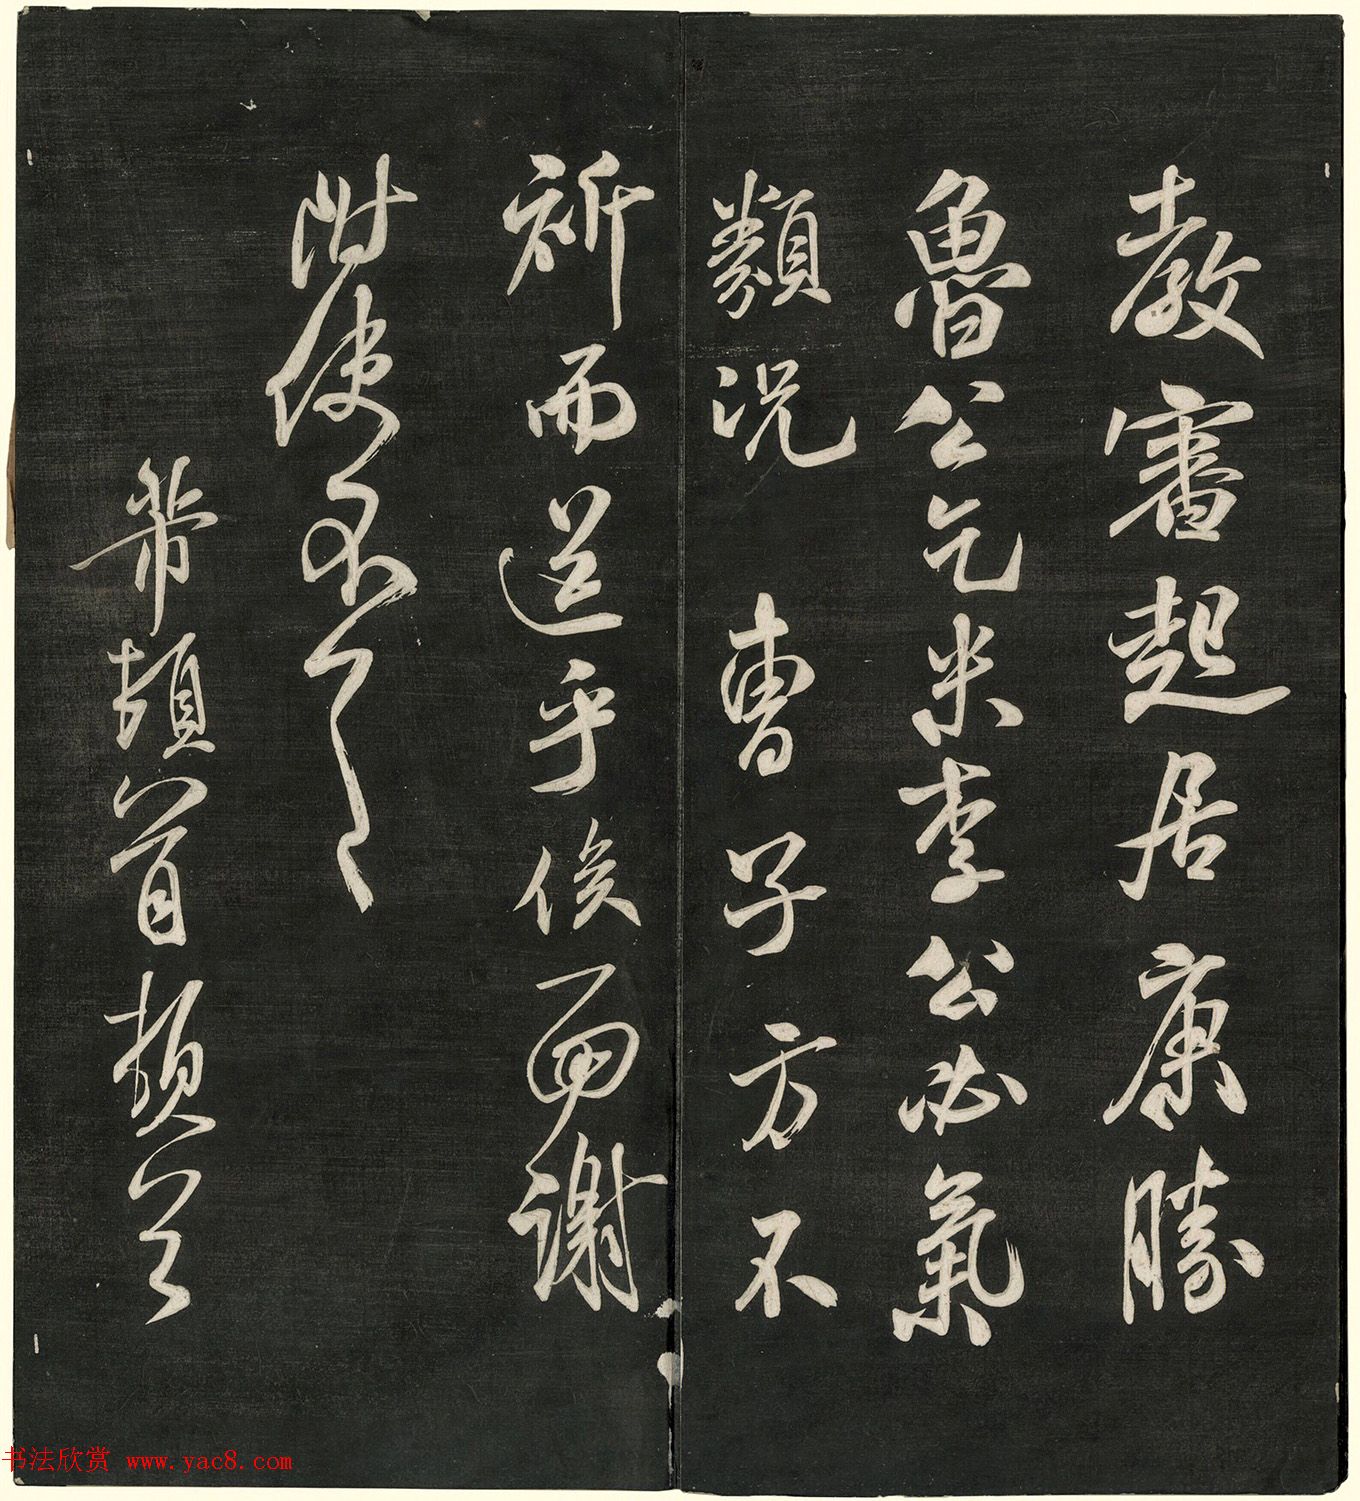 教審起居康勝
魯公乞米李公必氣
類況 曹子方不
祈而送乎俟面謝
附使不一一
芾頓首頓首
书法欣赏 www.yac8.com